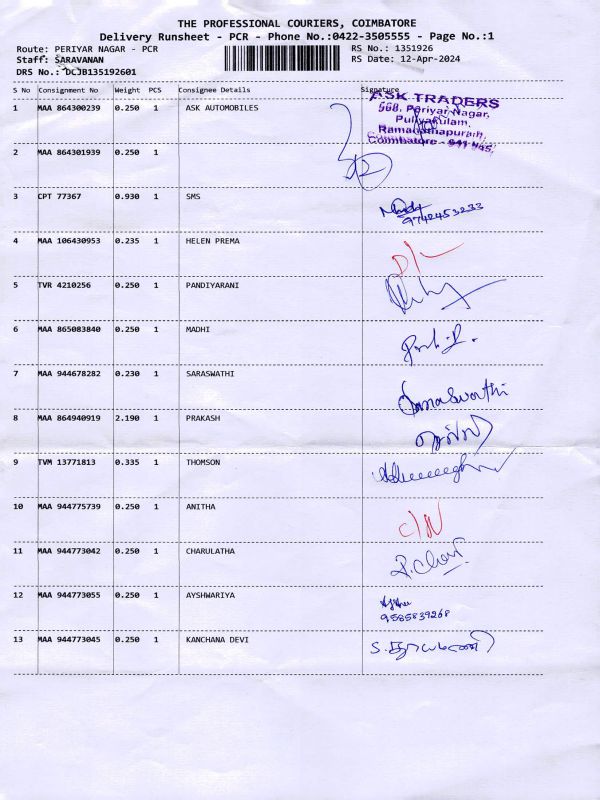 THE PROFESSIONAL COURIERS, COIMBATORE
Delivery Runsheet - PCR - Phone No.:0422-3505555 - Page No.:1
Route: PERIYAR NAGAR - PCR RS No.: 1351926
Staff: SARAVANAN RS Date: 12-Apr-2024
DRS No.: DCJB135192601
S No Consignment No Weight PCS Consignee Details Signature
1 MAA 864300239 0.250 1 ASK AUTOMOBILES
ASK TRADERS
568, Periyar Nagar,
Puliyakulam,
Ramanathapuram,
Coimbatore - 641 045.
2 MAA 864301939 0.250 1
3 CPT 77367 0.930 1 SMS
9742453233
4 MAA 106430953 0.235 1 HELEN PREMA
D/L
5 TVR 4210256 0.250 1 PANDIYARANI
6 MAA 865083840 0.250 1 MADHI
7 MAA 944678282 0.230 1 SARASWATHI
Saraswathi
8 MAA 864940919 2.190 1 PRAKASH
9 TVM 13771813 0.335 1 THOMSON
10 MAA 944775739 0.250 1 ANITHA
C/N
11 MAA 944773042 0.250 1 CHARULATHA
12 MAA 944773055 0.250 1 AYSHWARIYA
9585839268
13 MAA 944773045 0.250 1 KANCHANA DEVI